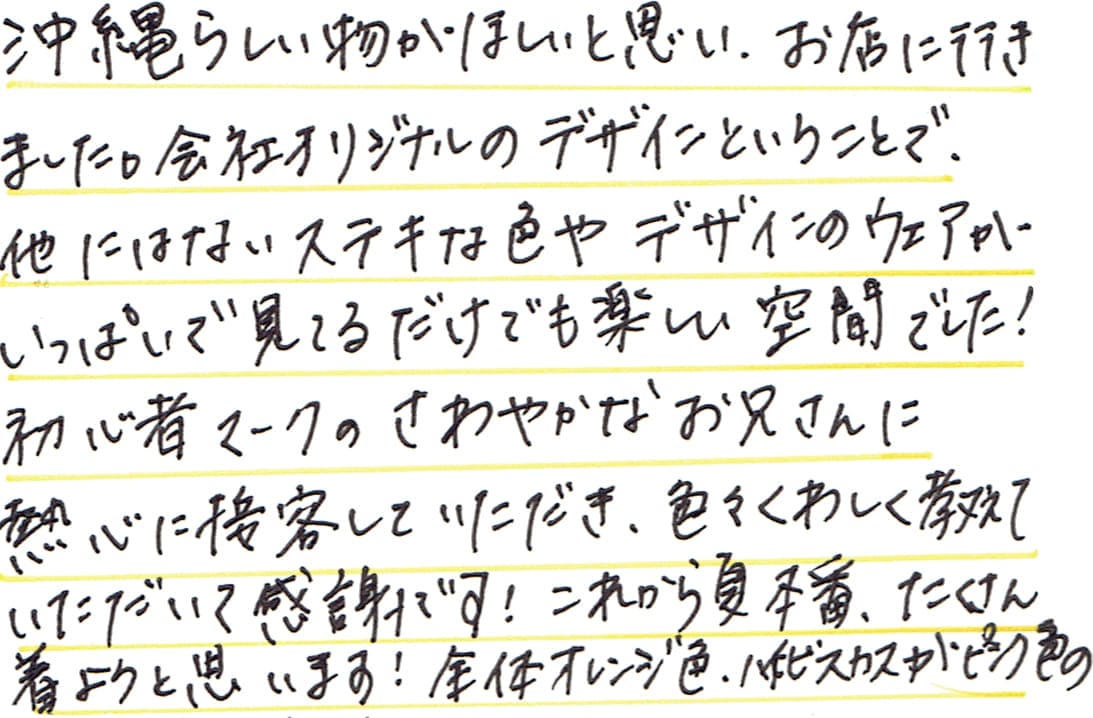 沖縄らしい物がほしいと思い、お店に行き
ました。会社オリジナルのデザインということで、
他にはないステキな色やデザインのウェアが
いっぱいで見てるだけでも楽しい空間でした!
初心者マークのさわやかなお兄さんに
熱心に接客していただき、色々くわしく教えて
いただいて感謝です!これから夏本番、たくさん
着ようと思います!全体オレンジ色、ハイビスカスがピンク色の